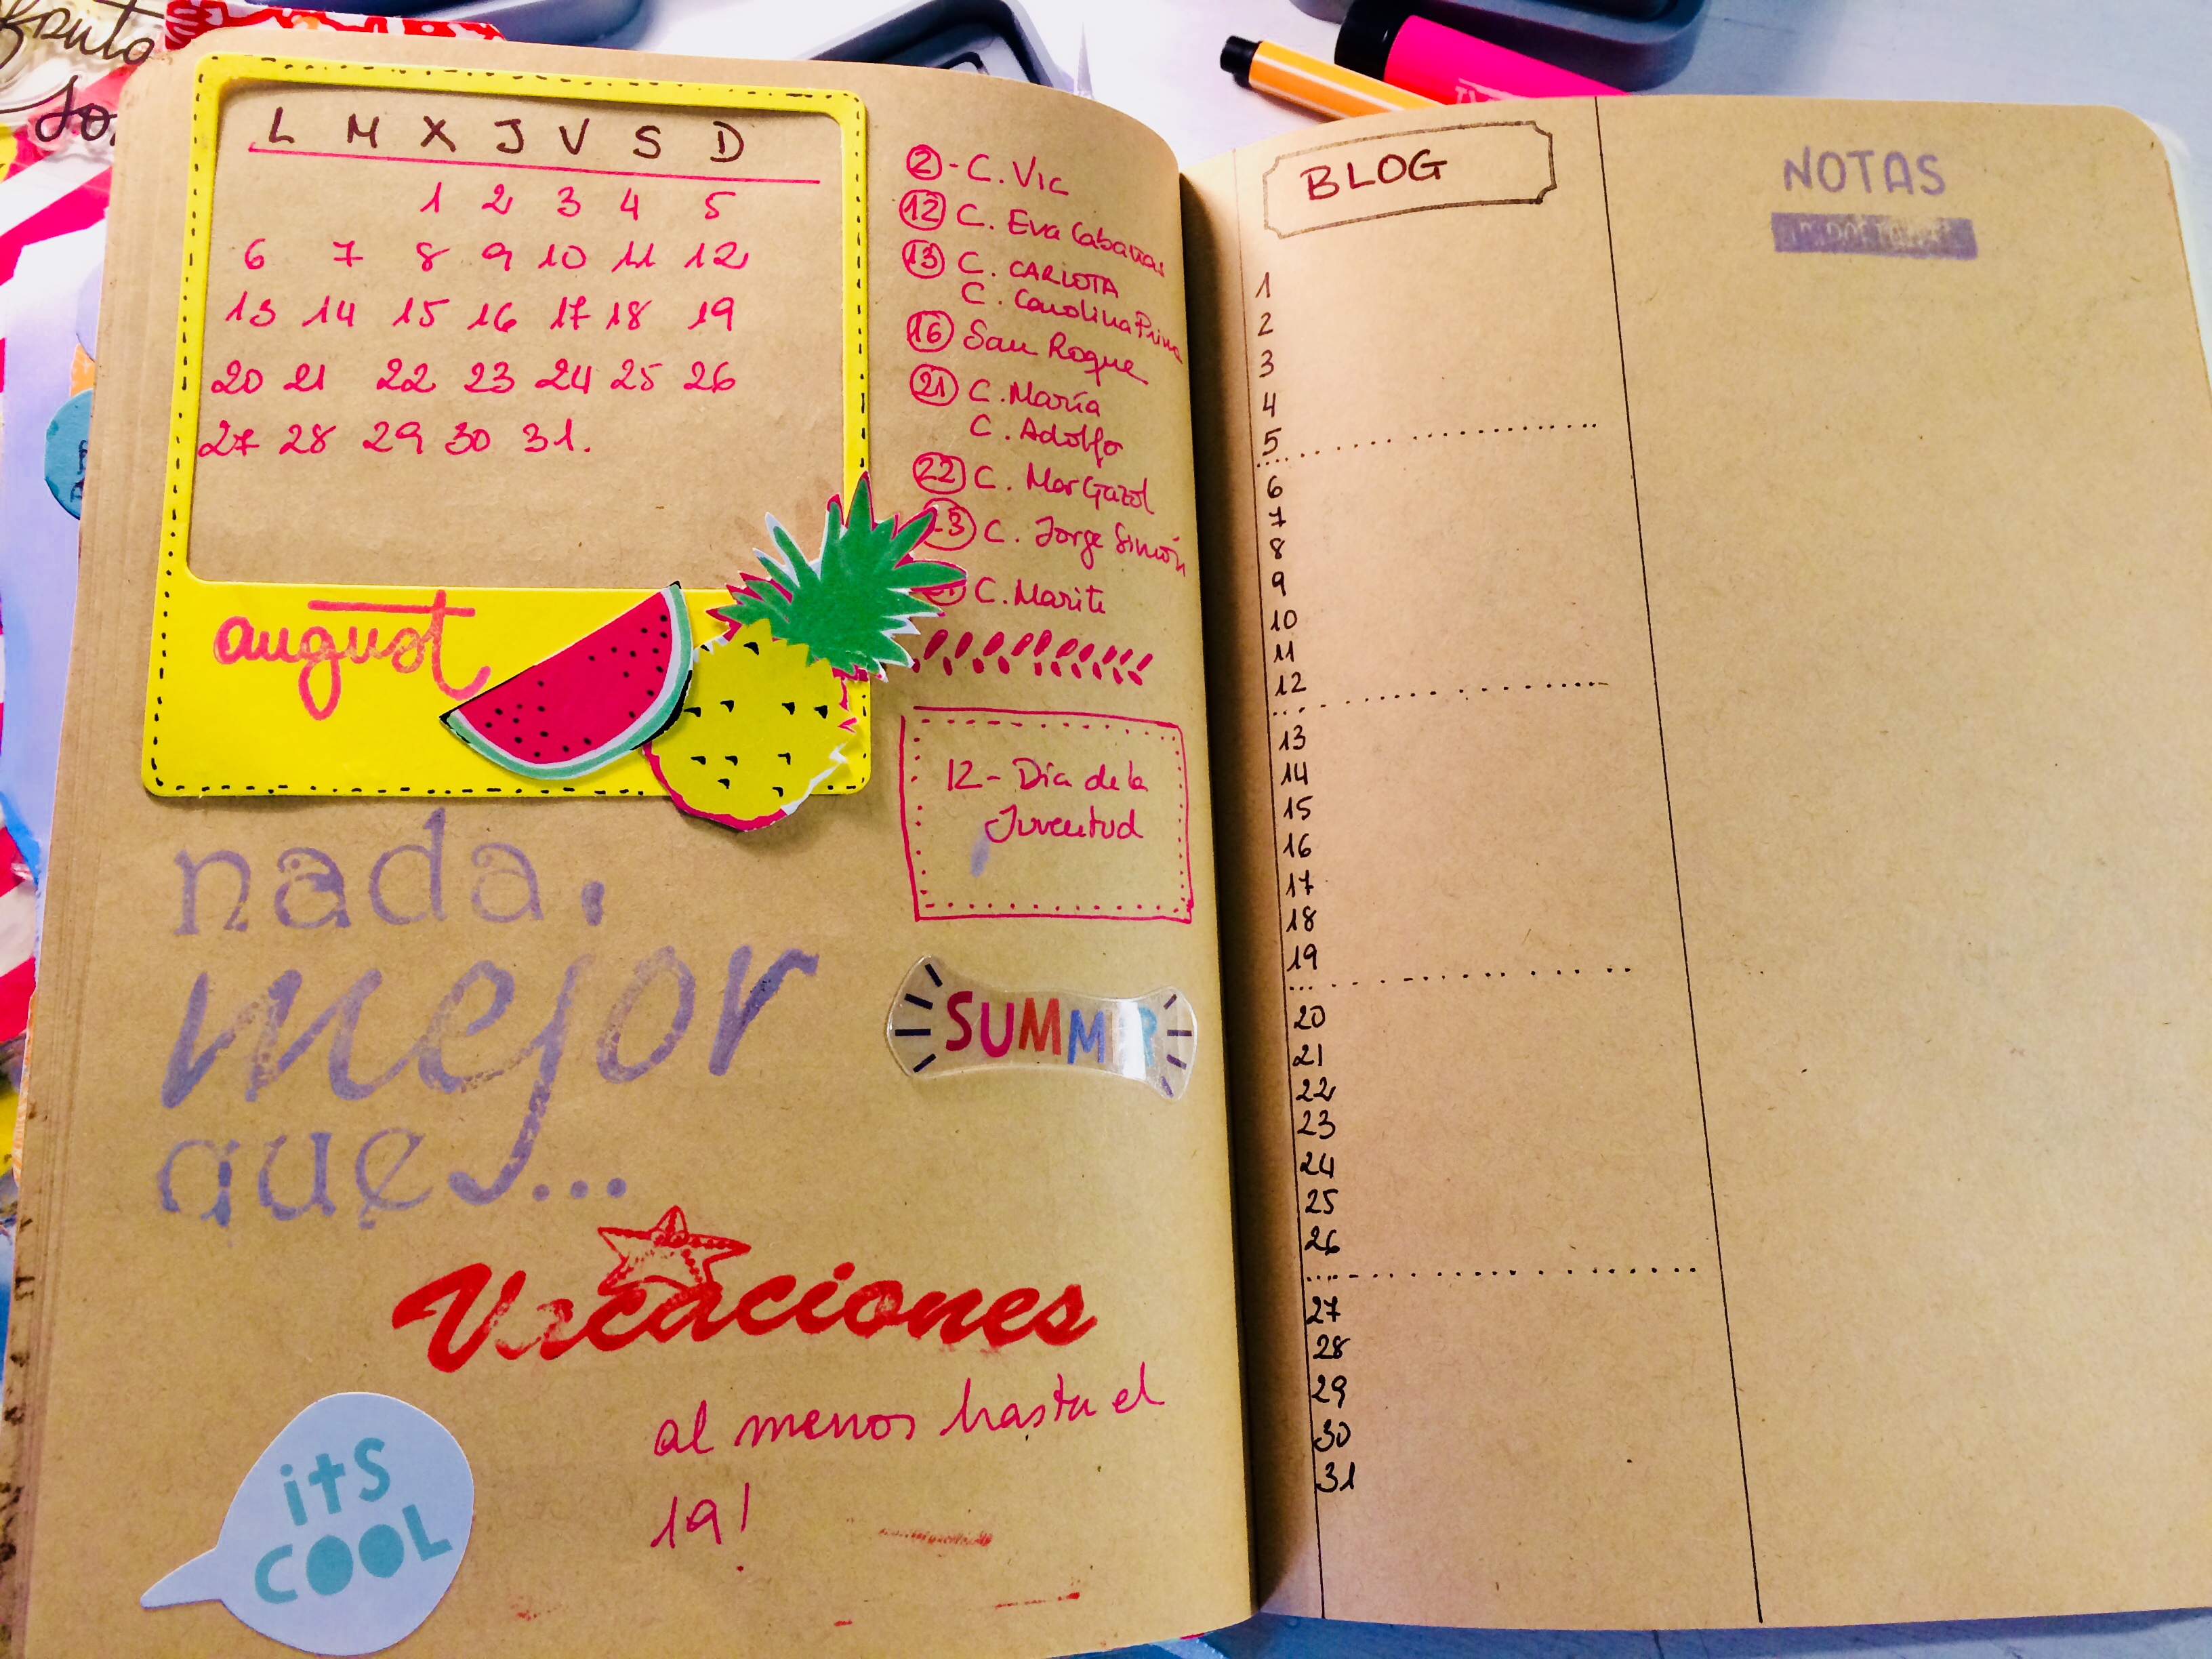 L M X J V S D
1 2 3 4 5
6 7 8 9 10 11 12
13 14 15 16 17 18 19
20 21 22 23 24 25 26
27 28 29 30 31.
august
② - C. Vic
⑫ C. Eva Cabañas
⑬ C. CARLOTA
C. Carolina
⑯ San Roque
㉑ C. María
C. Adolfo
㉒ C. Mar Gazol
C. Jorge Simón
C. Marite
12 - Día de la
Juventud
SUMMER
nada
mejor
que...
Vacaciones
al menos hasta el
19!
its
COOL
BLOG
1
2
3
4
5
6
7
8
9
10
11
12
13
14
15
16
17
18
19
20
21
22
23
24
25
26
27
28
29
30
31
NOTAS